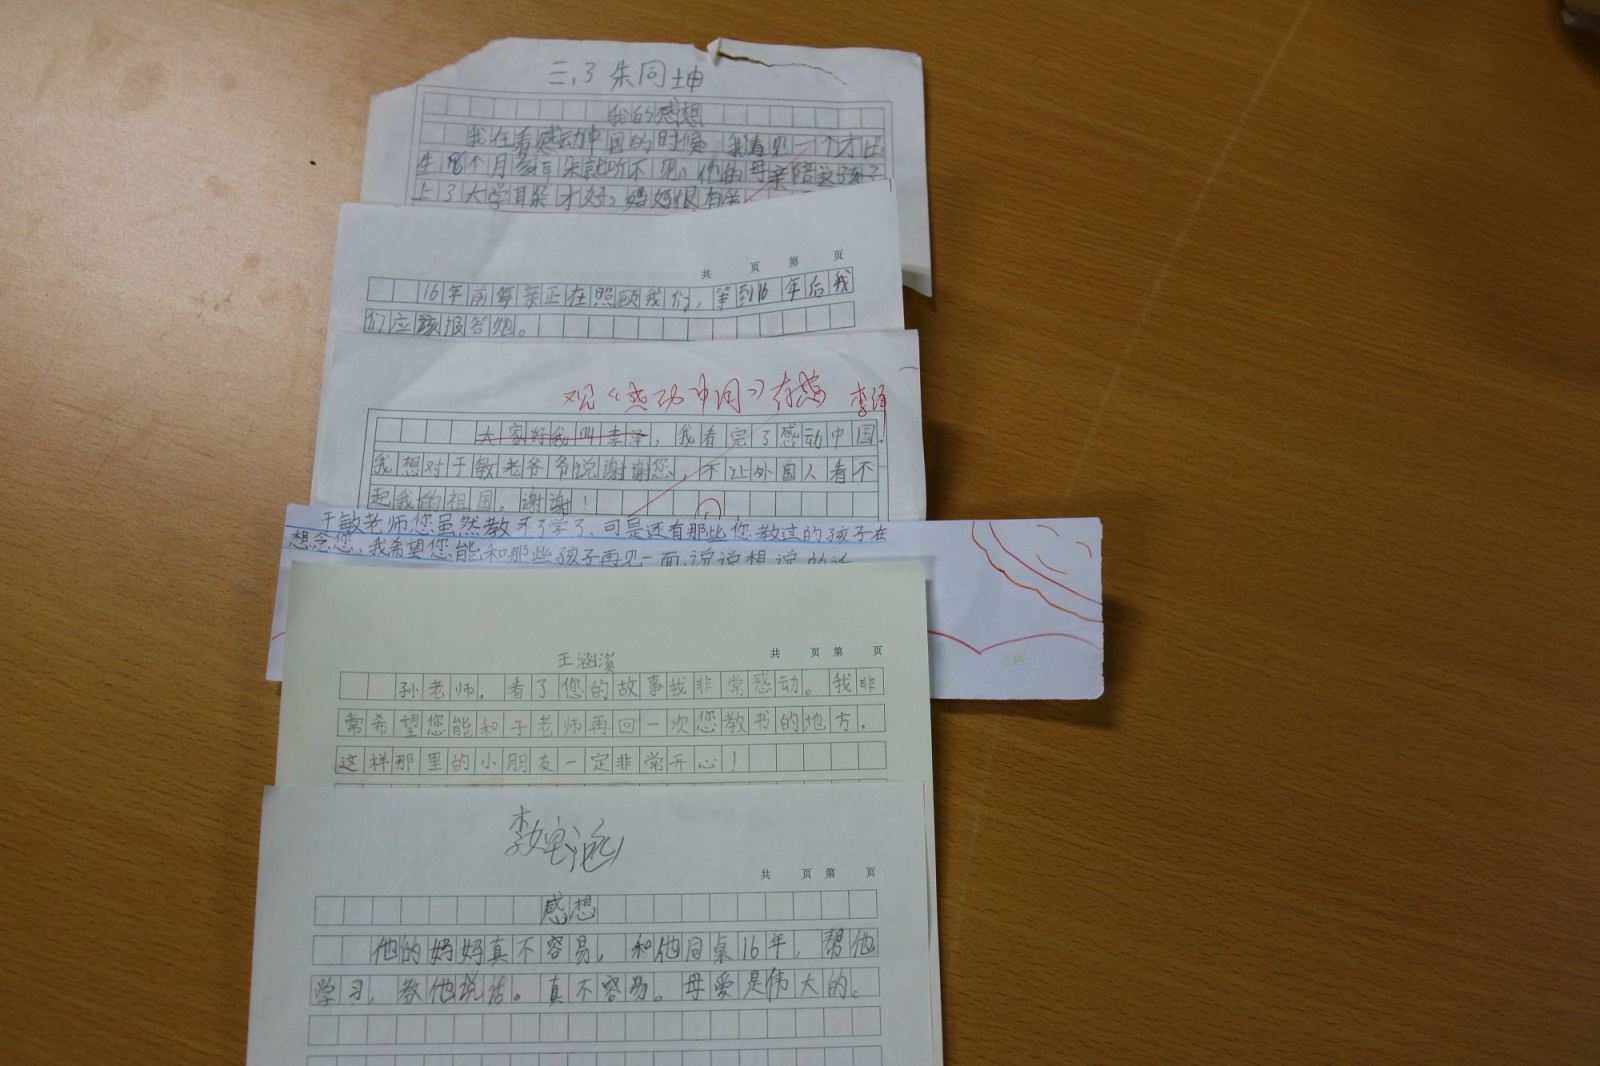 三.3 朱同坤
我的感想
我在看感动中国的时候,我看见一个才出
生8个月多耳朵就听不见,他的母亲陪这孩子
上了大学耳朵才好,妈妈很有
共 页 第 页
16年前母亲正在照顾我们,等到16年后我
们应该报答她。
观《感动中国》有感 李泽
大家好我叫李泽,我看完了感动中国.
我想对于敏老爷爷说谢谢您,不让外国人看不
起我的祖国。谢谢!
于敏老师您虽然教不了学了,可是还有那些您教过的孩子在
想念您,我希望您能和那些孩子再见一面,说说想说的话
共 页 第 页
王涵溪
孙老师,看了您的故事我非常感动。我非
常希望您能和于老师再回一次您教书的地方,
这样那里的小朋友一定非常开心!
李
共 页 第 页
感想
他的妈妈真不容易,和他同桌16年,帮他
学习,教他说话。真不容易。母爱是伟大的。